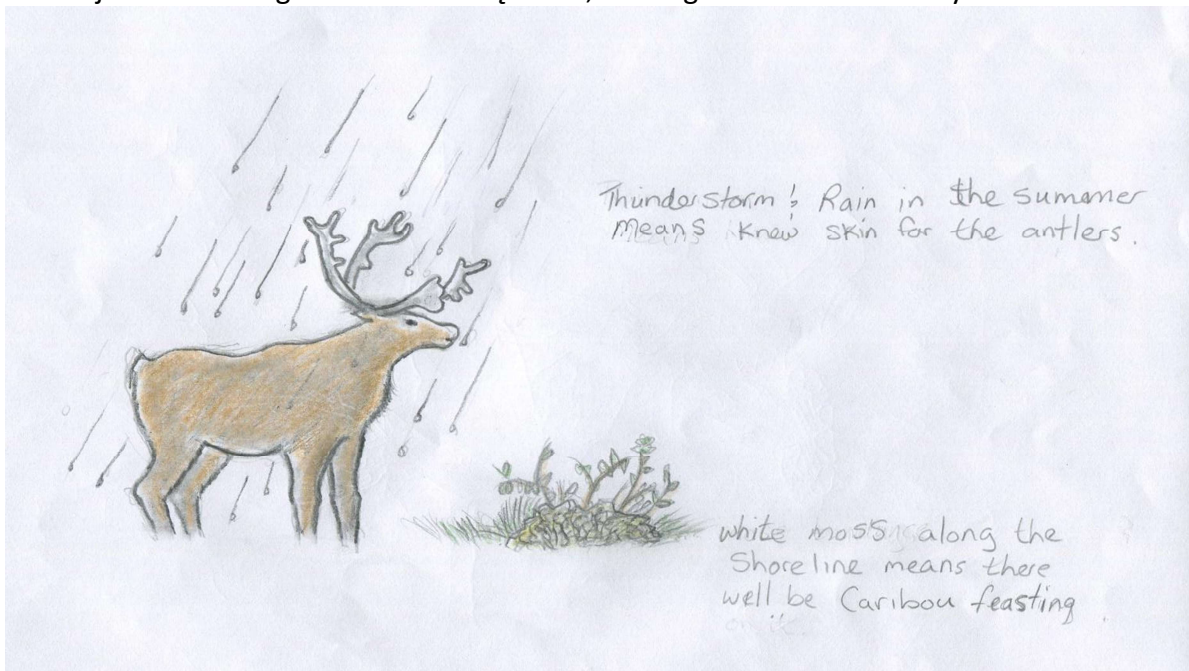 Thunderstorm! Rain in the summer
means knew skin for the antlers.
white moss along the
Shoreline means there
well be Caribou feasting
on it.